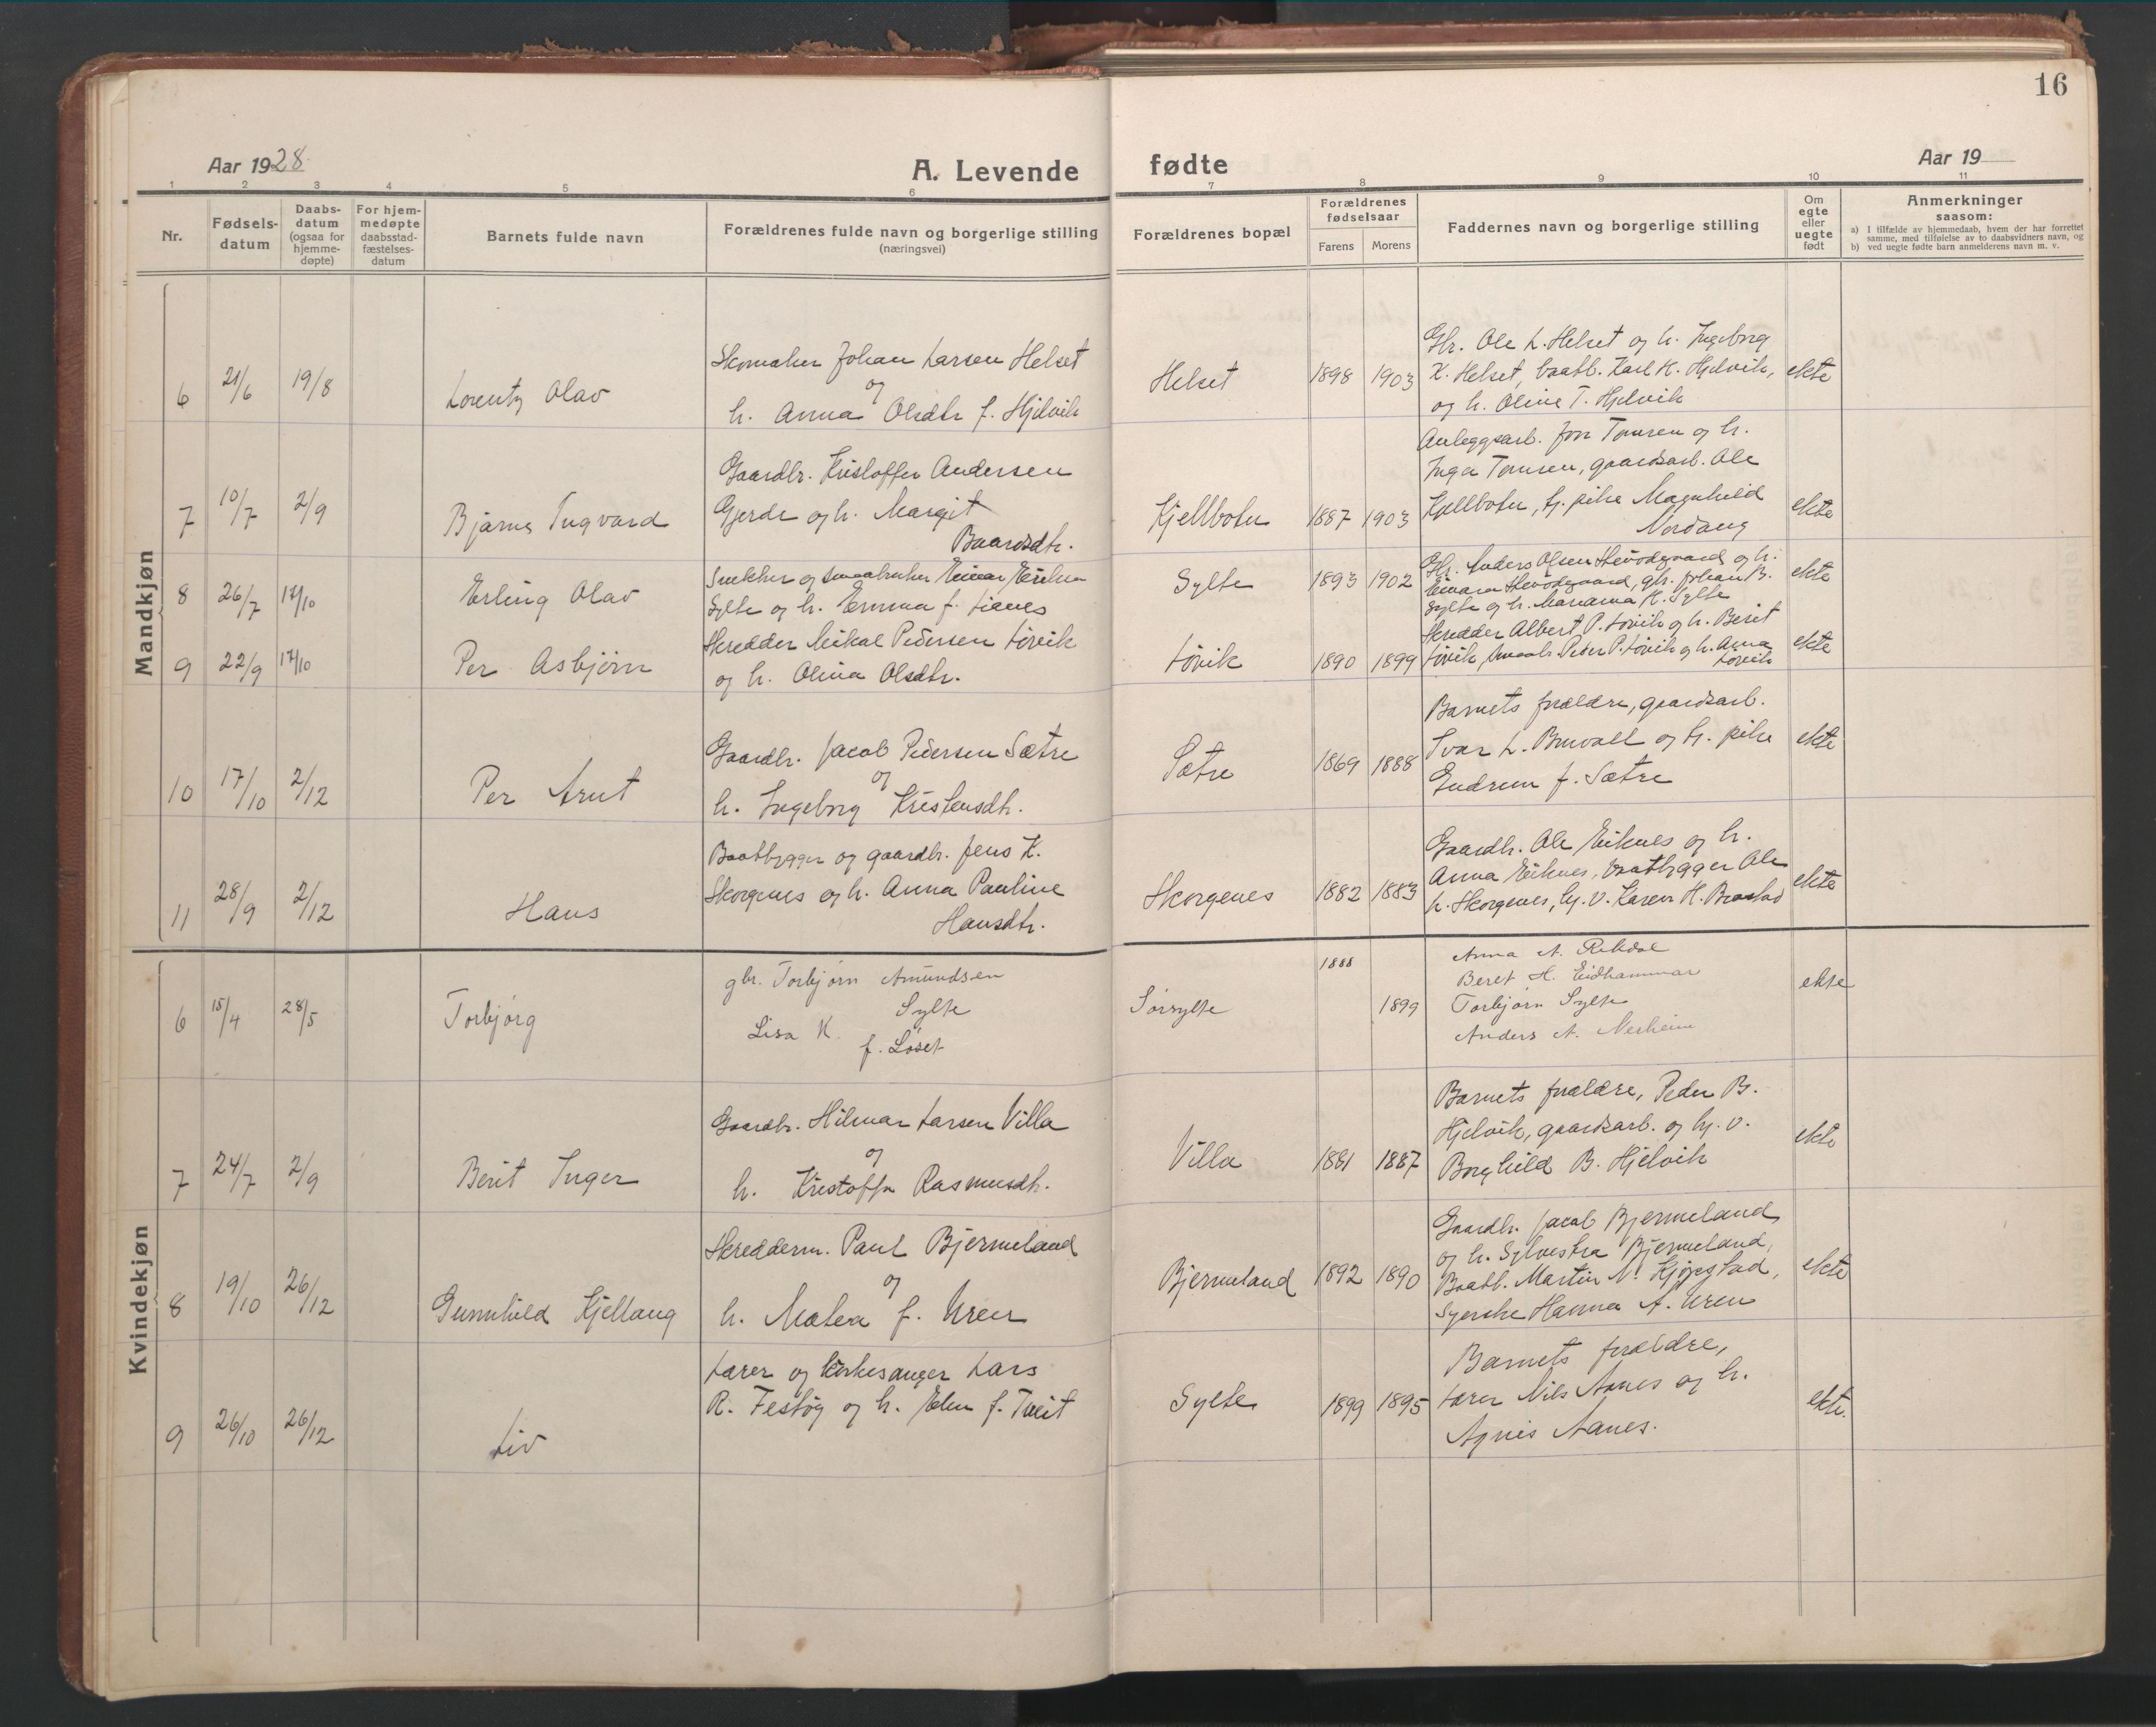 16
Aar 1928.
A. Levende
fødte
Aar 19
1 2 3 4 5 6 7 8 9 10 11
Nr.
Fødsels-
datum
Daabs-
datum
(ogsaa for
hjemme-
døpte)
For hjem-
medøpte
daabsstad-
fæstelses-
datum
Barnets fulde navn
Forældrenes fulde navn og borgerlige stilling
(næringsvei)
Forældrenes bopæl
Forældrenes
fødselsaar
Farens Morens
Faddernes navn og borgerlige stilling
Om
egte
eller
uegte
født
Anmerkninger
saasom:
a) I tilfælde av hjemmedaab, hvem der har forrettet
samme, med tilføielse av to daabsvidners navn, og
b) ved uegte fødte barn anmelderens navn m. v.
Mandkjøn
6 21/6 19/8 Lorentz Olav
Skomaker Johan Larsen Helset
og
h. Anna Olsdtr f. Hjelvik
Helset 1898 1903
Gbr. Ole L. Helset og h. Ingeborg
K. Helset, baatb. Karl K. Hjelvik,
og h. Oline T. Hjelvik
ekte
7 10/7 2/9 Bjarne Ingvard
Gaardbr. Kristoffer Andersen
Gjerde og h. Margit
Baardsdtr.
Kjellbotn 1887 1903
Anleggsarb. Jon Tomren og h.
Inga Tomren, gaardsarb. Ole
Kjellbotn, tj. pike Magnhild
Nordang
ekte
8 26/7 17/10 Erling Olav
Snekker og smaabruker Einar Eriksen
Sylte og h. Emma f. Lianes
Sylte 1893 1902
Gbr. Anders Olsen og h.
gbr. Johan B.
Sylte og h. Marianna K. Sylte
ekte
9 22/9 17/10 Per Asbjørn
Skredder Mikal Pedersen Løvik
og h. Olina Olsdtr.
Løvik 1890 1899
Skredder Albert P. Løvik og h. Berit
Løvik, smaabr. Peder P. Løvik og h. Anna
Løvik
ekte
10 17/10 2/12 Per Arnt
Gaardbr. Jacob Pedersen Sætre
og
h. Ingeborg Kristensdtr.
Sætre 1869 1888
Barnets forældre, gaardsarb.
Ivar L. Bruvoll og tj. pike
Gudrun J. Sætre
ekte
11 28/9 2/12 Hans
Baatbygger og gaardbr. Jens K.
Skorgenes og h. Anna Pauline
Hansdtr.
Skorgenes 1882 1883
Gaardbr. Ole Eiknes og h.
Anna Eiknes, baatbygger Ole
L. Skorgenes, hj. v. Karen H. Brastad
ekte
Kvindekjøn
6 15/4 28/5 Torbjørg
gbr. Torbjørn Amundsen
Sylte
Lisa K.
f. Løset
Sørsylte 1888 1899
Anna A. Rekdal
Beret H. Eidhammar
Torbjørn Sylte
Anders A. Nerheim
ekte
7 24/7 2/9 Berit Inger
Gaardbr. Hilmar Larsen Villa
og
h. Kristoffa Rasmusdtr.
Villa 1881 1887
Barnets forældre, Peder B.
Hjelvik, gaardsarb. og hj. v.
Borghild B. Hjelvik
ekte
8 19/10 26/12 Gunnhild Kjellaug
Skredderm. Paul Bjermeland
og
h. Matea f. Uren
Bjermeland 1892 1890
Gaardbr. Jacob Bjermeland
og h. Sylvestra Bjermeland,
Baatb. Martin N. Kjøpstad,
Syerske Hanna A. Uren
ekte
9 26/10 26/12 Liv
Lærer og kirkesanger Lars
R. Festøy og h. Elen f. Tveit
Sylte 1899 1895
Barnets forældre,
Lærer Nils Aanes og h.
Agnes Aanes.
ekte.